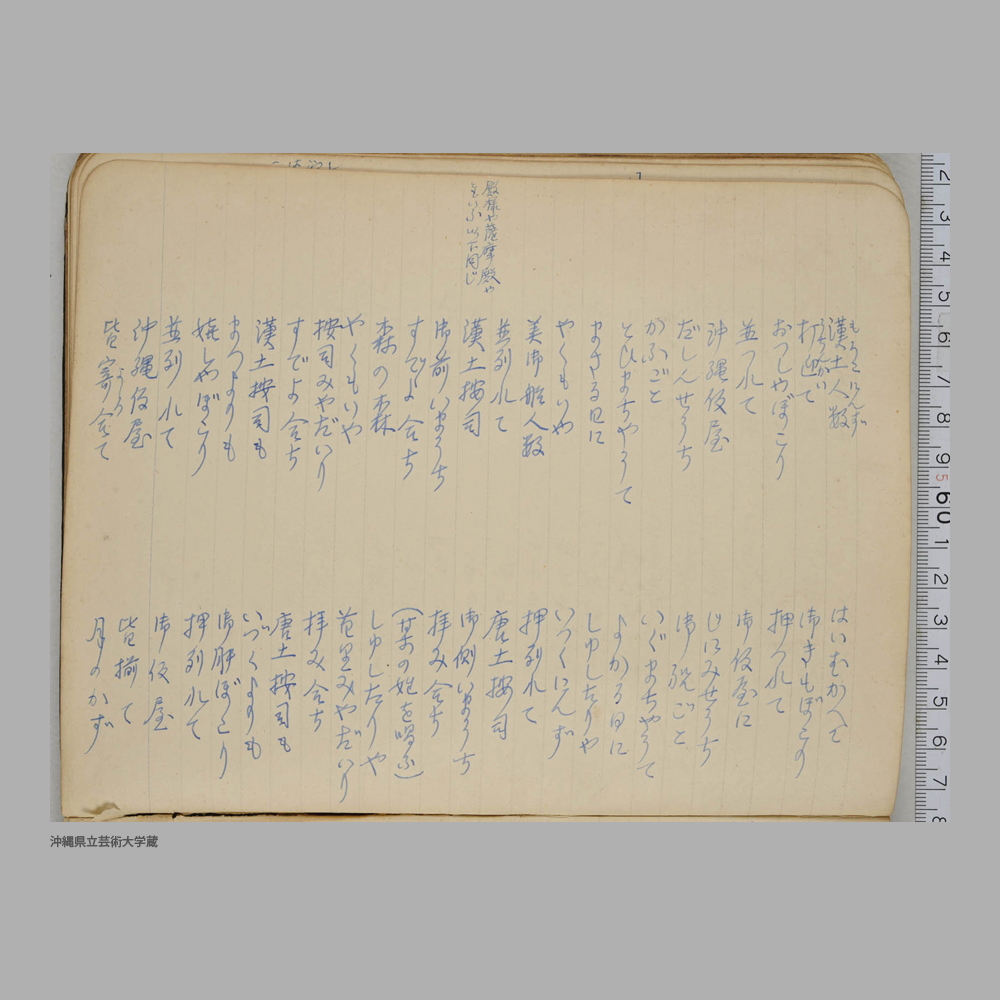 殿様や薩摩殿や
をいふ以下同じ
漢土人数
打迎て
おつしやぼこり
並つれて
沖縄仮屋
だしんせうち
かふごと
とひまちやうて
まさる日に
やくもいや
美御船人数
並列れて
漢土按司
御前いまうち
すでよ合ち
森の森
やくもいや
按司みやだいり
すでよ合ち
漢土按司も
まつよりも
嬉しやぼこり
並列れて
沖縄仮屋
皆寄合て
はいむかへて
御きもぼこり
押つれて
御仮屋に
じにみせうち
御祝ごと
いぐまちやうて
よかる日に
しゆしたりや
いつくにんず
押列れて
唐土按司
御側いまうち
拝み合ち
(某の姓を唱ふ)
しゆしたりや
首里みやだいり
拝み合ち
唐土按司も
いづくよりも
御肝ぼこり
押列れて
御仮屋
皆揃て
月のかず
沖縄県立芸術大学蔵